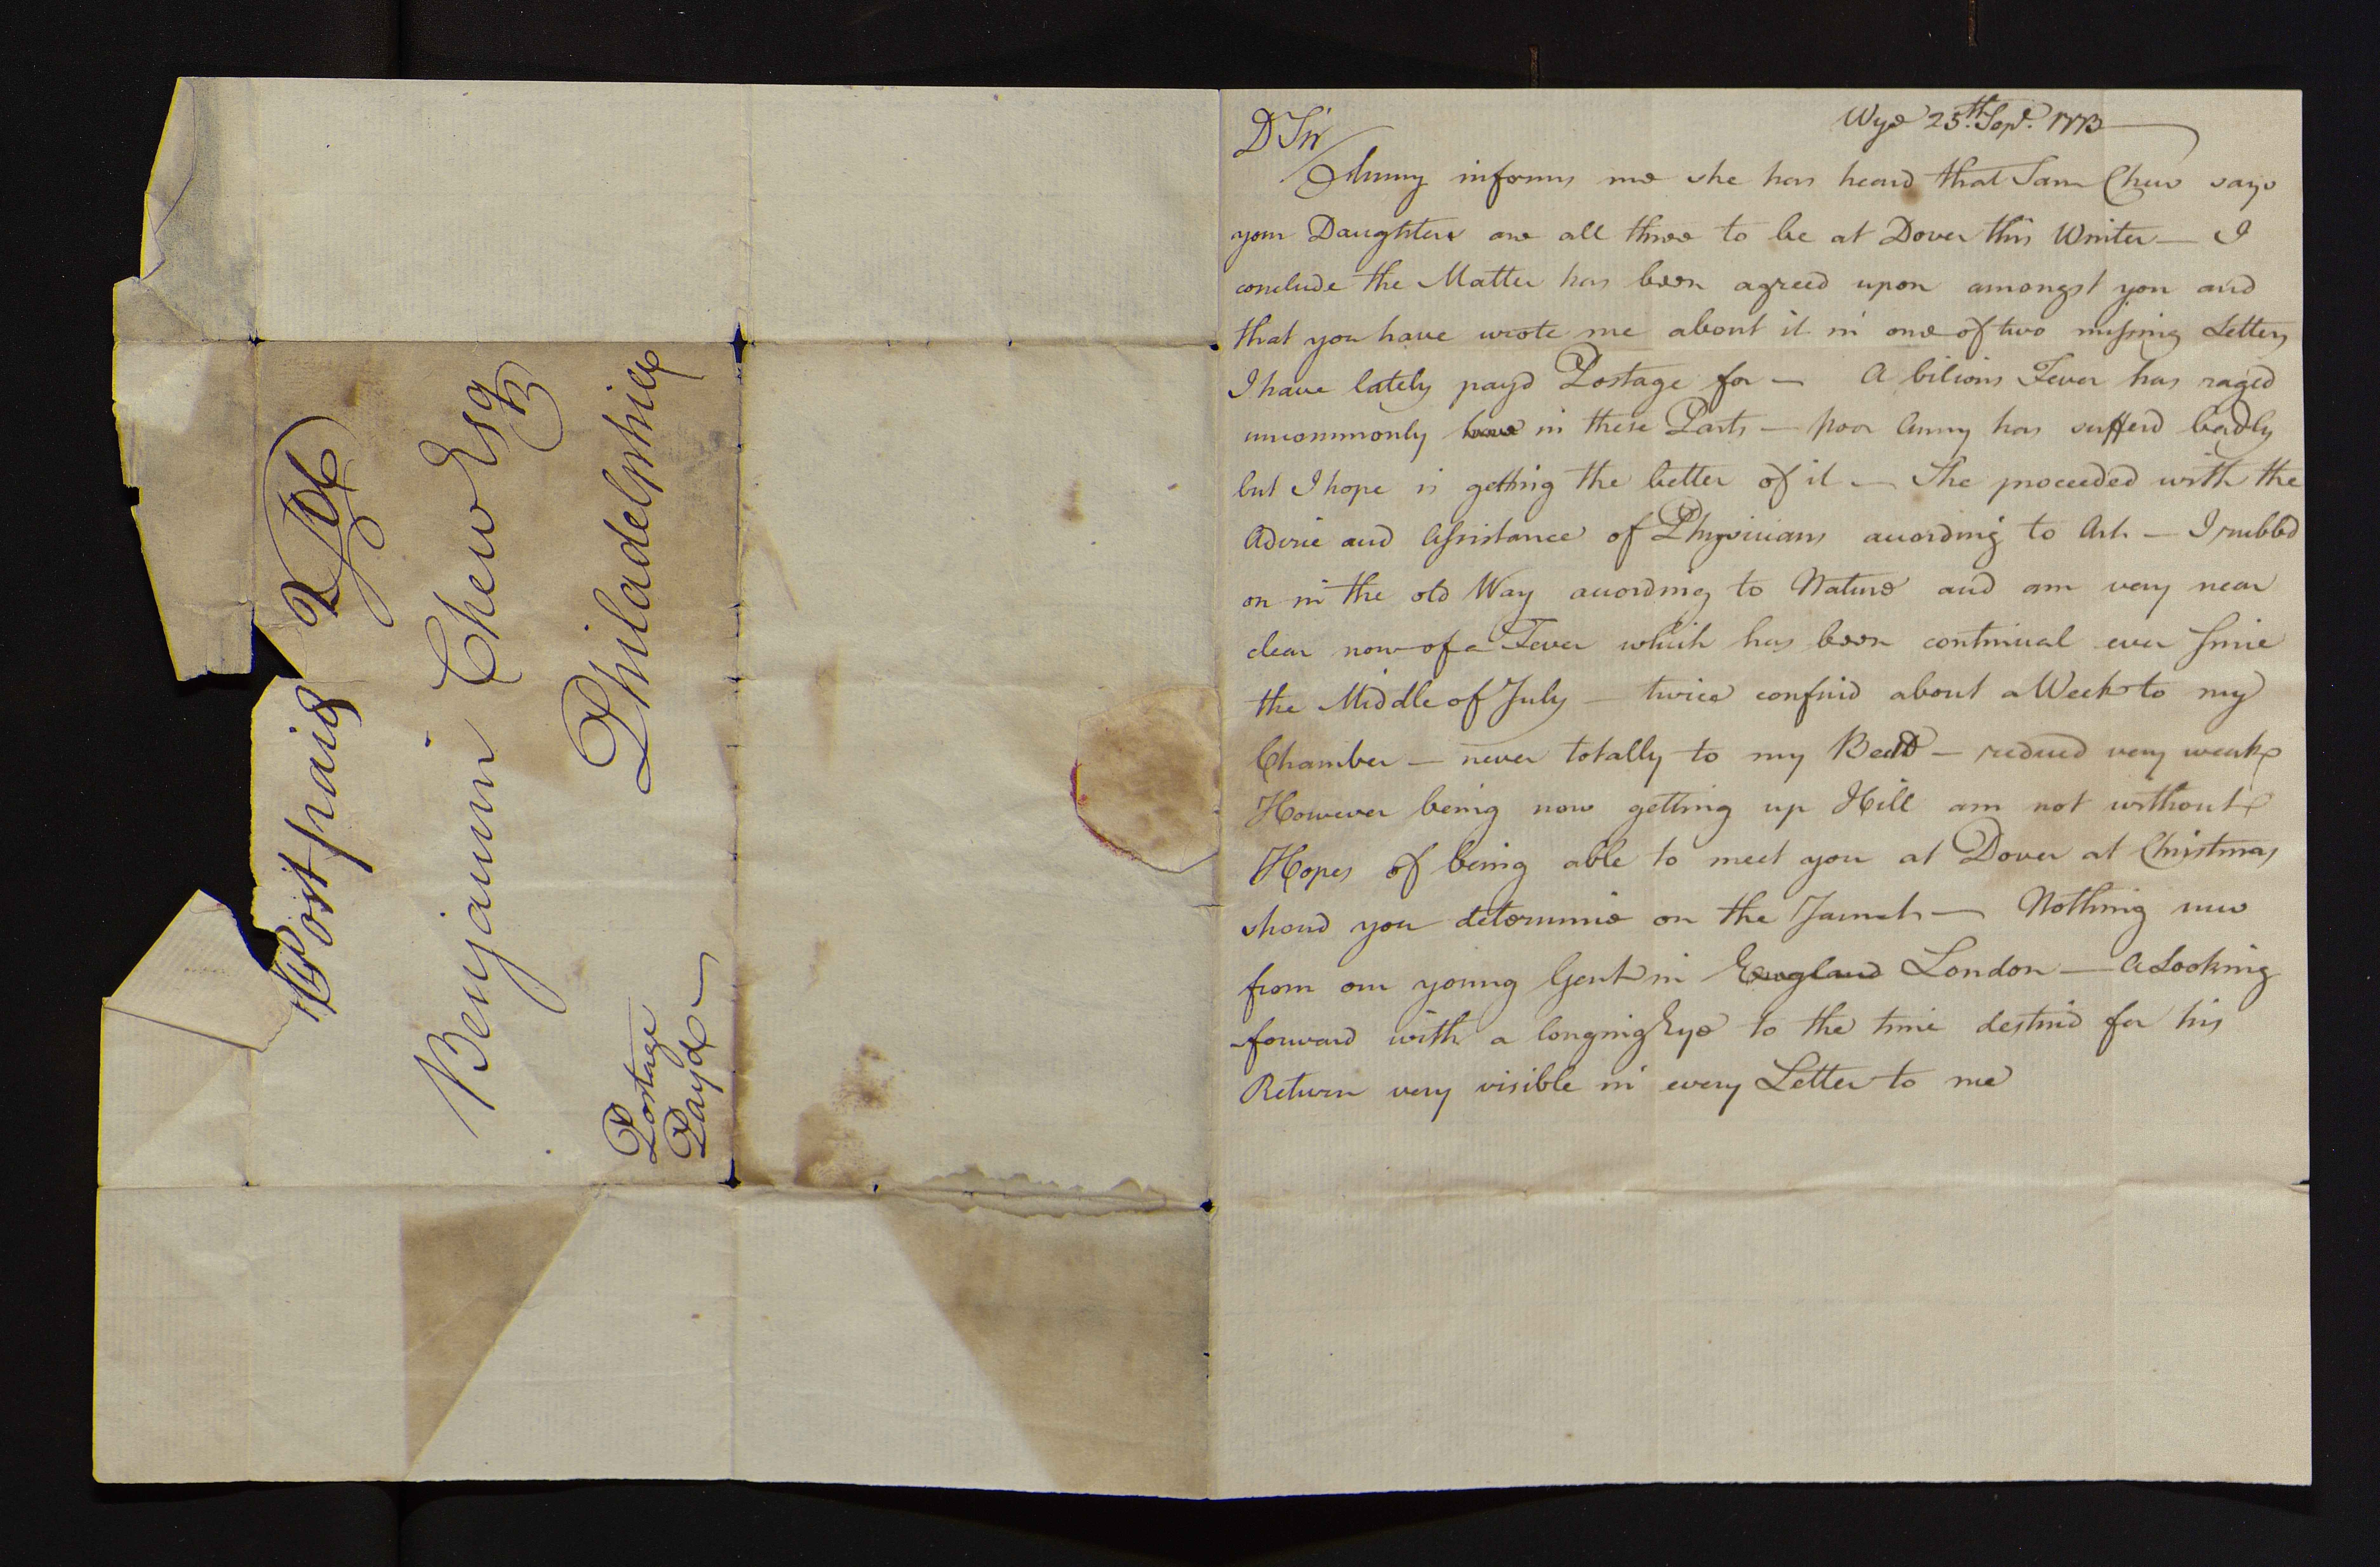 Post paid 2/
Benjamin Chew Esq
Philadelphia
Postage
Payd
Wye 25th. Sept. 1773
D Sir
Anny informs me she has heard that Sam Chew says
your Daughters are all three to be at Dover this Winter — I
conclude the Matter has been agreed upon amongst you and
that you have wrote me about it in one of two missing Letters
I have lately payd Postage for — A bilious Fever has raged
uncommonly in these Parts — poor Anny has sufferd badly
but I hope is getting the better of it — She proceeded with the
Advice and Assistance of Physicians according to Art — I rubbd
on in the old Way according to Nature and am very near
clear now of a Fever which has been continual ever since
the Middle of July — twice confind about a Week to my
Chamber — never totally to my Bedd — reduced very weak
However being now getting up Hill am not without
Hopes of being able to meet you at Dover at Christmas
shoud you determine on the Jaunt — Nothing new
from our young Gent in England London — A Looking
forward with a longing Eye to the time destind for his
Return very visible in every Letter to me